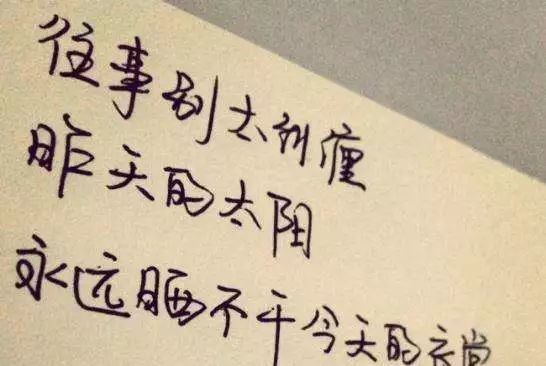 往事别去纠缠
昨天的太阳
永远晒不干今天的衣裳